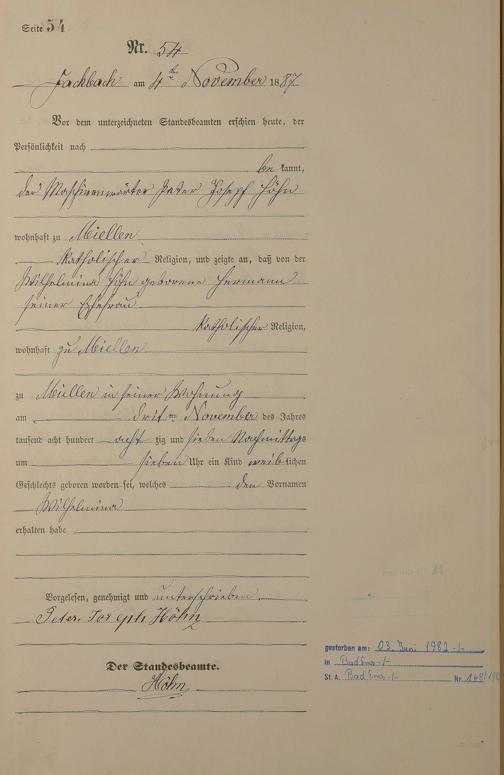 Seite 54
Nr. 54
Fachbach am 4ten November 1887
Vor dem unterzeichneten Standesbeamten erschien heute, der
Persönlichkeit nach
be kannt,
der Maschinenwärter Peter Joseph Höhn
wohnhaft zu Miellen
katholischer Religion, und zeigte an, daß von der
Wilhelmina Höhn geborene Hermann
seiner Ehefrau
katholischer Religion,
wohnhaft zu Miellen
zu Miellen in seiner Wohnung
am dritten November des Jahres
tausend acht hundert acht zig und sieben Nachmittags
um sieben Uhr ein Kind weib lichen
Geschlechts geboren worden sei, welches den Vornamen
Wilhelmina
erhalten habe
Vorgelesen, genehmigt und unterschrieben
Peter Joseph Höhn
Der Standesbeamte.
Höhn
gestorben am: 03. Juni 1982 -/-
in Bad Ems -/-
St. A. Bad Ems -/- Nr. 168/